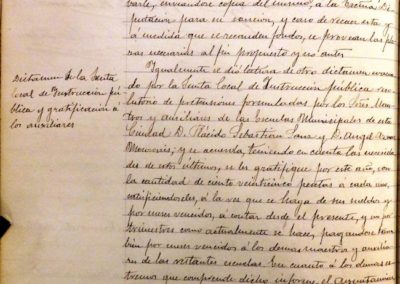 varle, enviandose copia del mismo, á la Excma. Di-
putacion para su sancion, y caso de recaer esta y
á medida que se recauden fondos, se provean las pla-
zas necesarias al fin propuesto y no antes.
Igualmente se dió lectura de otro dictamen evacua-
do por la Junta local de Instruccion pública
de pretensiones formuladas por los Sres. Maes-
tros y auxiliares de las Escuelas Municipales de esta
Ciudad D. Plácido Sebastian y D. Angel
y se acuerda, teniendo en cuenta las
de estos últimos, se les gratifique por este año, con
la cantidad de ciento veinticinco pesetas á cada uno,
á la vez que se haga de sus sueldos y
por meses vencidos, á contar desde el presente, y no por
trimestres como actualmente se hace, pagandose tam-
bien por meses vencidos á los demas maestros y auxilia-
res de las restantes escuelas. En cuanto á los demas es-
tremos que comprende dicho informe, el Ayuntamien-
Dictamen de la Junta
local de Instruccion pú-
blica y gratificacion á
los auxiliares